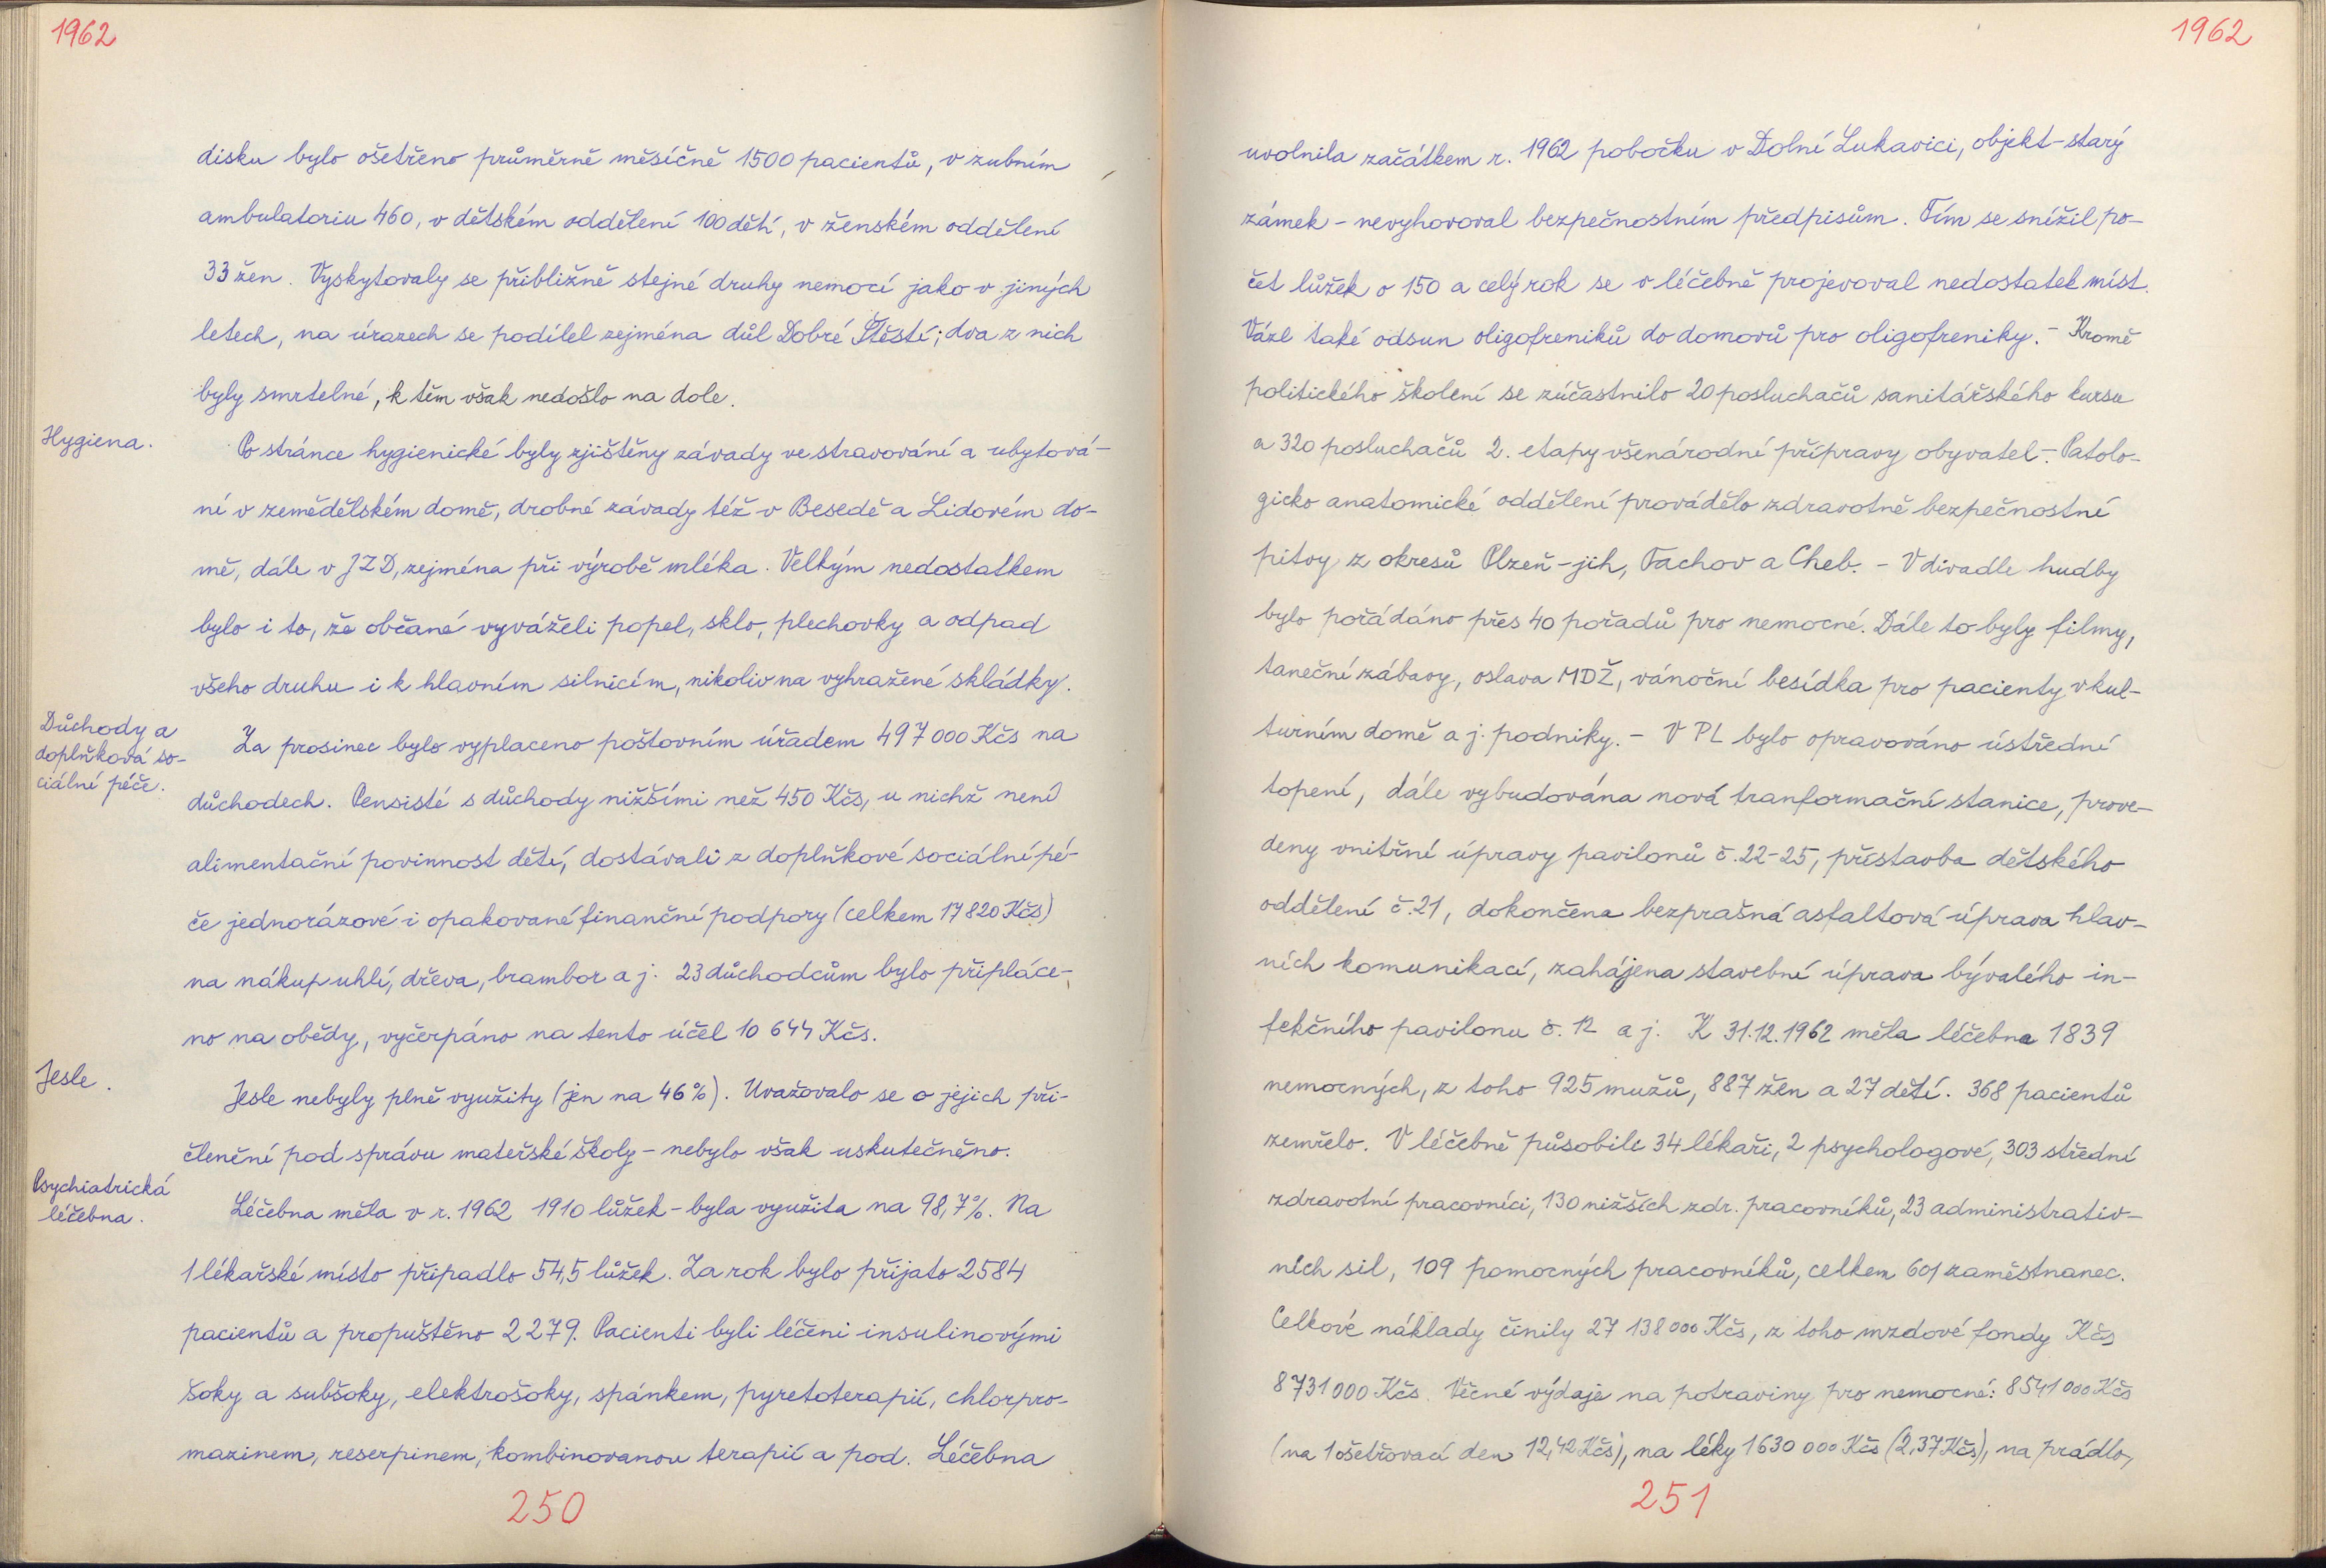 1962
disku bylo ošetřeno průměrně měsíčně 1500 pacientů, v zubním
ambulatoriu 460, v dětském oddělení 100 dětí, v ženském oddělení
33 žen. Vyskytovaly se přibližně stejné druhy nemocí jako v jiných
letech, na úrazech se podílel zejména důl Dobré Štěstí; dva z nich
byly smrtelné, k těm však nedošlo na dole.
Hygiena.
Po stránce hygienické byly zjištěny závady ve stravování a ubytová-
ní v zemědělském domě, drobné závady též v Besedě a Lidovém do-
mě, dále v JZD, zejména při výrobě mléka. Velkým nedostatkem
bylo i to, že občané vyváželi popel, sklo, plechovky a odpad
všeho druhu i k hlavním silnicím, nikoliv na vyhražené skládky.
Důchody a
doplňková so-
ciální péče.
Za prosinec bylo vyplaceno poštovním úřadem 497 000 Kčs na
důchodech. Pensisté s důchody nižšími než 450 Kčs, u nichž není
alimentační povinnost dětí, dostávali z doplňkové sociální pé-
če jednorázové i opakované finanční podpory (celkem 17 820 Kčs)
na nákup uhlí, dřeva, brambor a j. 23 důchodcům bylo připláce-
no na obědy, vyčerpáno na tento účel 10 644 Kčs.
Jesle.
Jesle nebyly plně využity (jen na 46%). Uvažovalo se o jejich při-
členění pod správu mateřské školy - nebylo však uskutečněno.
Psychiatrická
léčebna.
Léčebna měla v r. 1962 1910 lůžek - byla využita na 98,7%. Na
1 lékařské místo připadlo 54,5 lůžek. Za rok bylo přijato 2584
pacientů a propuštěno 2279. Pacienti byli léčeni insulinovými
šoky a subšoky, elektrošoky, spánkem, pyretoterapií, chlorpro-
mazinem, reserpinem, kombinovanou terapií a pod. Léčebna
250
1962
uvolnila začátkem r. 1962 pobočku v Dolní Lukavici, objekt - starý
zámek - nevyhovoval bezpečnostním předpisům. Tím se snížil po-
čet lůžek o 150 a celý rok se v léčebně projevoval nedostatek míst.
Vázl také odsun oligofreniků do domovů pro oligofreniky. - Kromě
politického školení se zúčastnilo 20 posluchačů sanitářského kursu
a 320 posluchačů 2. etapy všenárodní přípravy obyvatel -. Patolo-
gicko anatomické oddělení provádělo zdravotně bezpečnostní
pitvy z okresů Plzeň - jih, Tachov a Cheb. - V divadle hudby
bylo pořádáno přes 40 pořadů pro nemocné. Dále to byly filmy,
taneční zábavy, oslava MDŽ, vánoční besídka pro pacienty v kul-
turním domě a j. podniky. - V PL bylo opravováno ústřední
topení, dále vybudována nová tranformační stanice, prove-
deny vnitřní úpravy pavilonů č. 22-25, přístavba dětského
oddělení č. 21, dokončena bezprašná asfaltová úprava hlav-
ních komunikací, zahájena stavební úprava bývalého in-
fekčního pavilonu č. 12 a j. K 31.12.1962 měla léčebna 1839
nemocných, z toho 925 mužů, 887 žen a 27 dětí. 368 pacientů
zemřelo. V léčebně působile 34 lékaři, 2 psychologové, 303 střední
zdravotní pracovníci, 130 nižších zdr. pracovníků, 23 administrativ-
ních sil, 109 pomocných pracovníků, celkem 601 zaměstnanec.
Celkové náklady činily 27 138 000 Kčs, z toho mzdové fondy Kčs
8 731 000 Kčs. Věcné výdaje na potraviny pro nemocné: 8 541 000 Kčs
(na 1 ošetřovací den 12,42 Kčs), na léky 1 630 000 Kčs (2,37 Kčs), na prádlo,
251